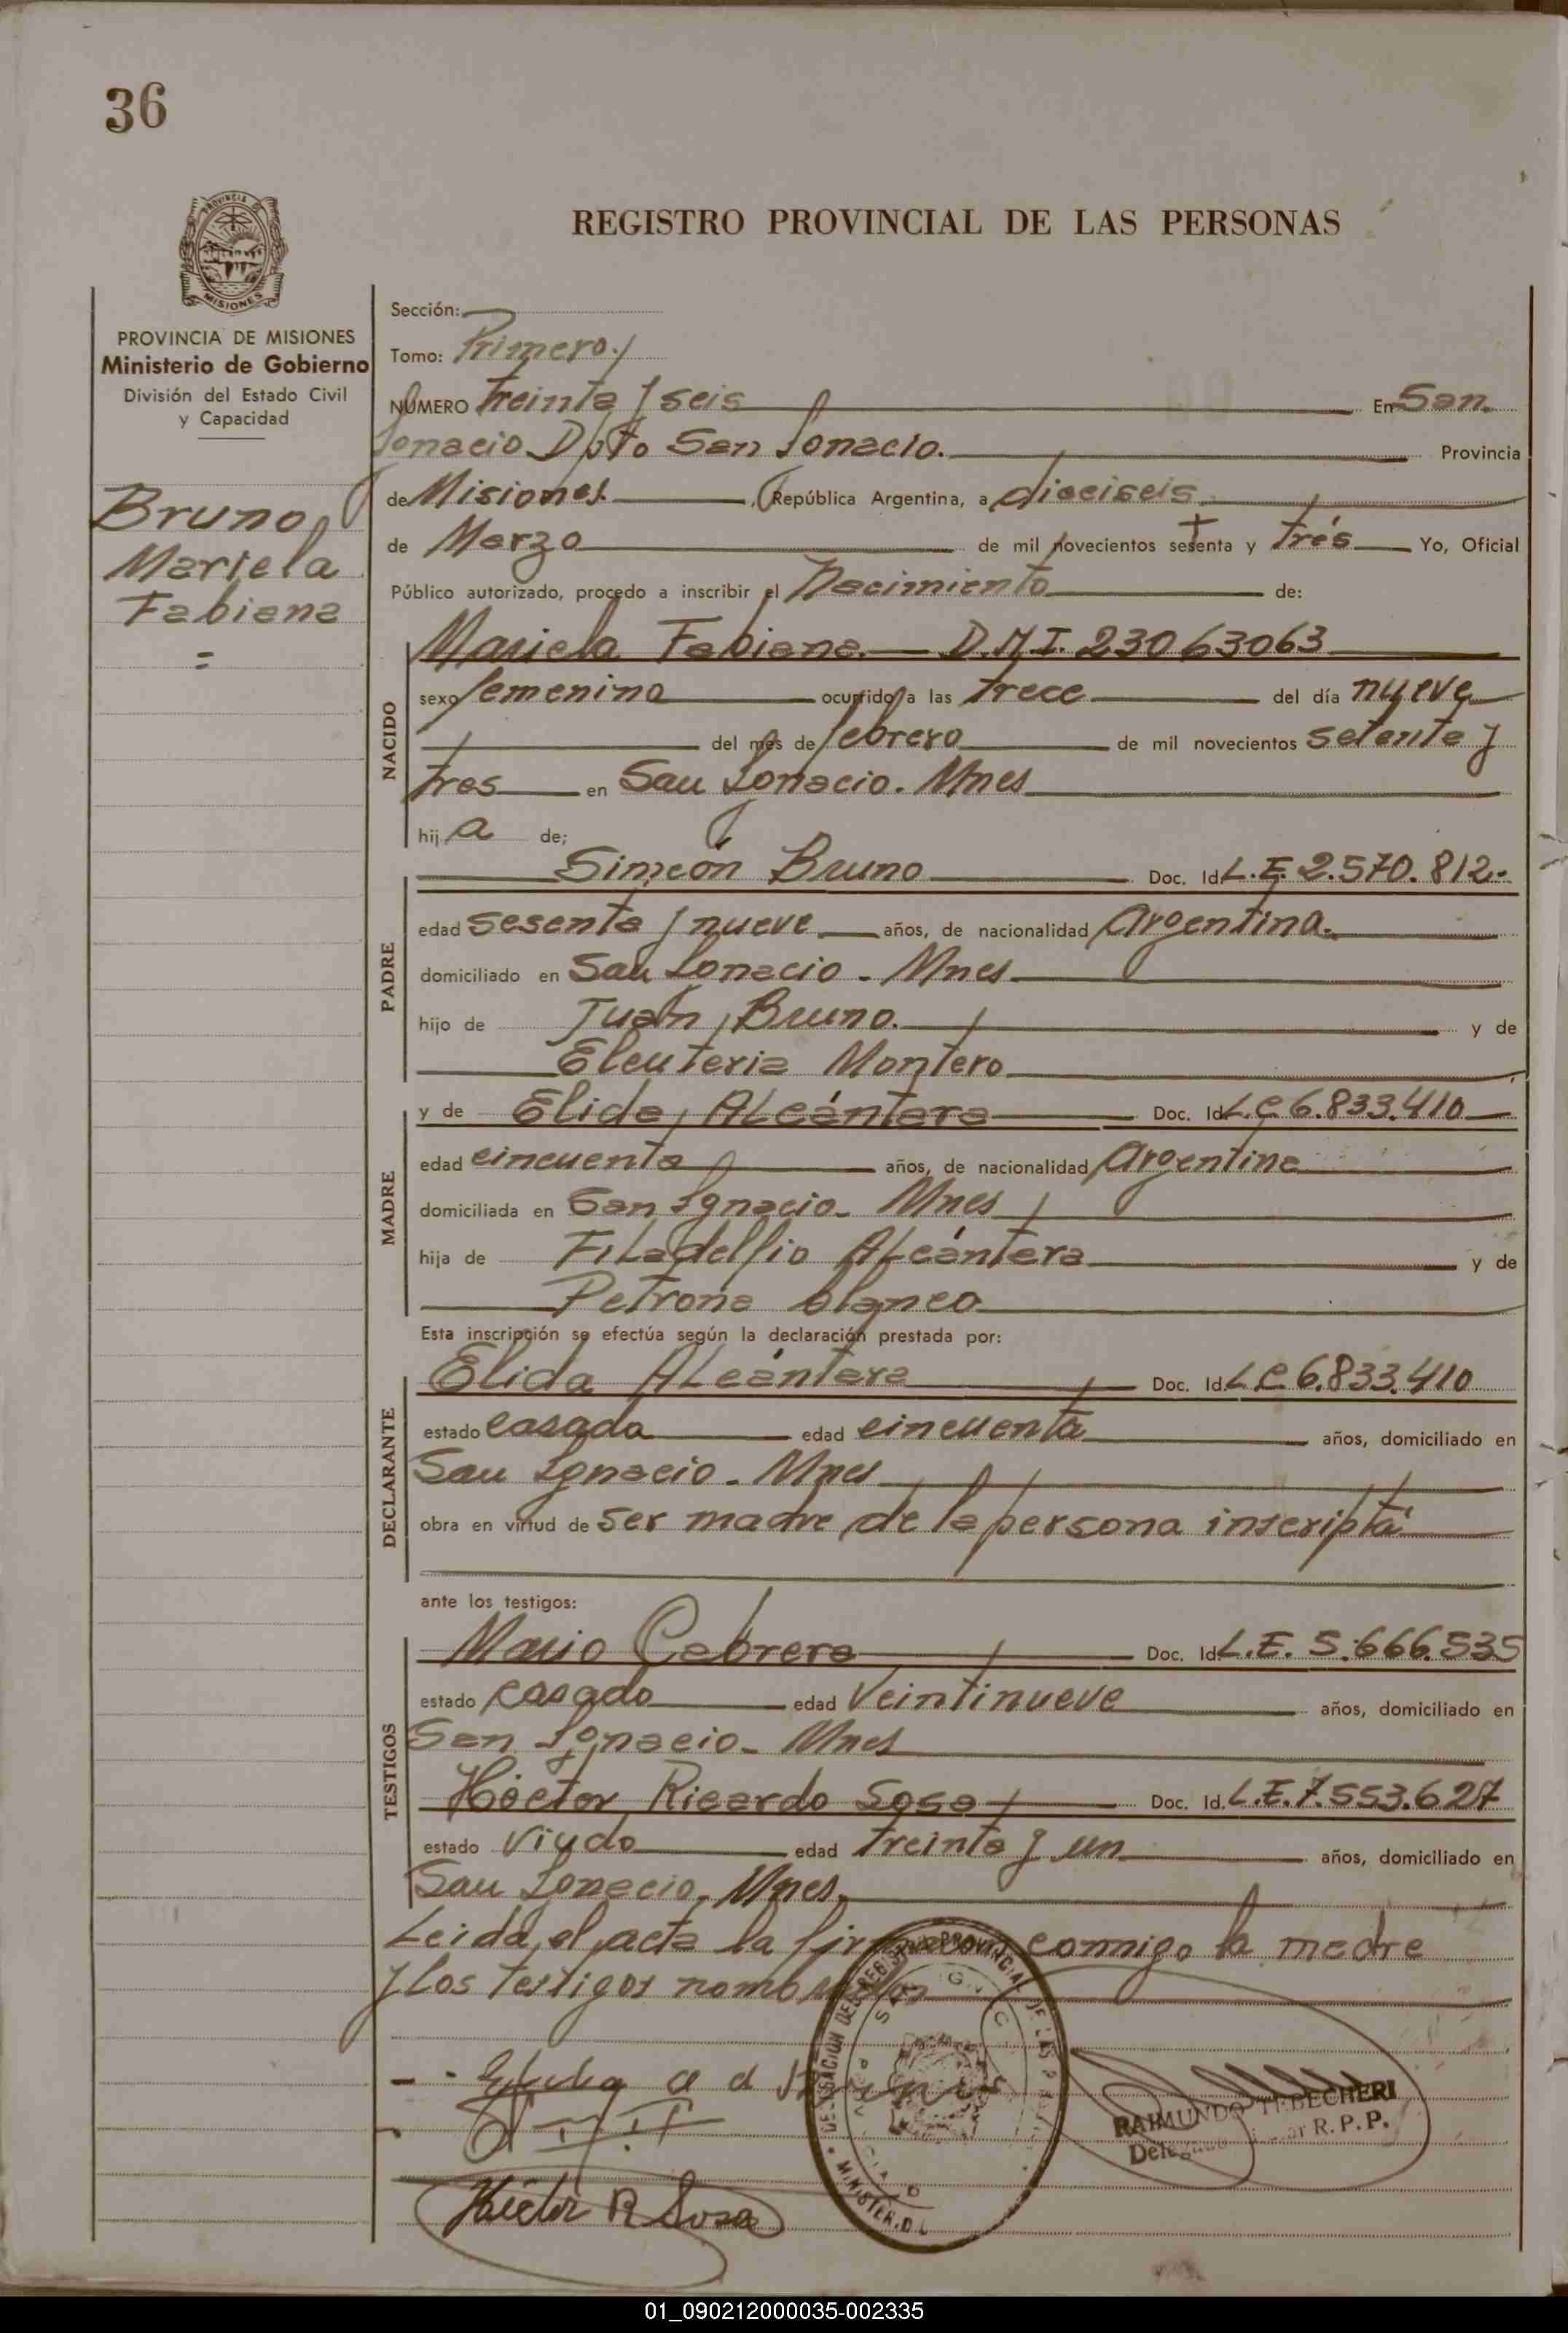 36
PROVINCIA DE
MISIONES
PROVINCIA DE MISIONES
Ministerio de Gobierno
División del Estado Civil
y Capacidad
Bruno
Mariela
Fabiana
=
REGISTRO PROVINCIAL DE LAS PERSONAS
Sección:
Tomo: Primero
NÚMERO Treinta y seis En San
Ignacio Dpto San Ignacio. Provincia
de Misiones, República Argentina, a dieciseis
de Marzo de mil novecientos setenta y trés Yo, Oficial
Público autorizado, procedo a inscribir el Nacimiento de:
NACIDO
Mariela Fabiana.— D.N.I. 23063063
sexo femenino ocurrido a las trece del día nueve
del mes de febrero de mil novecientos setenta y
tres en San Ignacio. Mnes
hija de;
PADRE
Simeón Bruno Doc. Id. L.E. 2.570.812.
edad sesenta y nueve años, de nacionalidad Argentina.
domiciliado en San Ignacio - Mnes
hijo de Juan Bruno. y de
Eleuteria Montero
MADRE
y de Elida Alcántara Doc. Id. L.C 6.833.410
edad cincuenta años, de nacionalidad Argentina
domiciliada en San Ignacio - Mnes
hija de Filadelfio Alcántara y de
Petrona blanco
Esta inscripción se efectúa según la declaración prestada por:
DECLARANTE
Elida Alcántara Doc. Id. L.C. 6.833.410
estado casada edad cincuenta años, domiciliado en
San Ignacio - Mnes
obra en virtud de ser madre de la persona inscripta
ante los testigos:
TESTIGOS
Mario Cabrera Doc. Id. L.E. 5.666.535
estado casado edad veintinueve años, domiciliado en
San Ignacio - Mnes
Héctor Ricardo Sosa Doc. Id. L.E. 7.553.627
estado viudo edad treinta y un años, domiciliado en
San Ignacio, Mnes.
Leida el acta la firman conmigo la madre
y los testigos nombrados
DELEGACION DEL REGISTRO PROVINCIAL DE LAS
MINISTERIO
RAIMUNDO TEBECHERI
R. P. P.
Héctor R Sosa
01_090212000035-002335